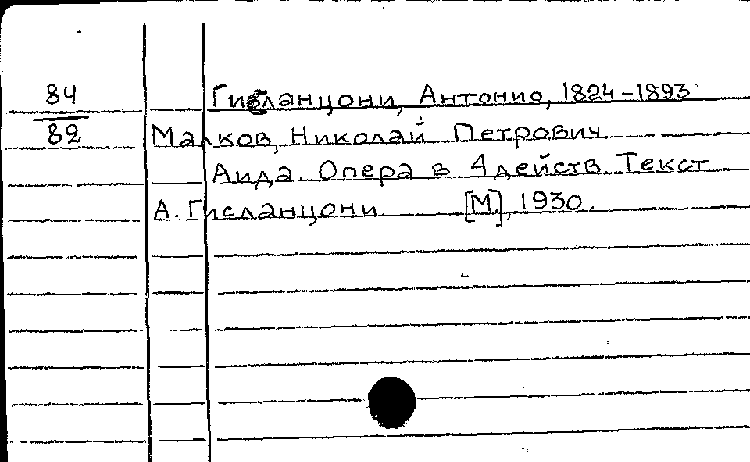 84 Гисланцони, Антонио, 1824-1893
82 Малков, Николай Петрович.
Аида. Опера в 4 действ. Текст
А. Гисланцони. [М.], 1930.